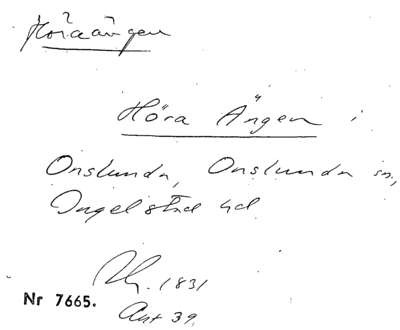 Höraängen
Höra Ängen i
Onslunda, Onslunda sn,
Ingelstad hd
1831
Nr 7665.
Akt 39.